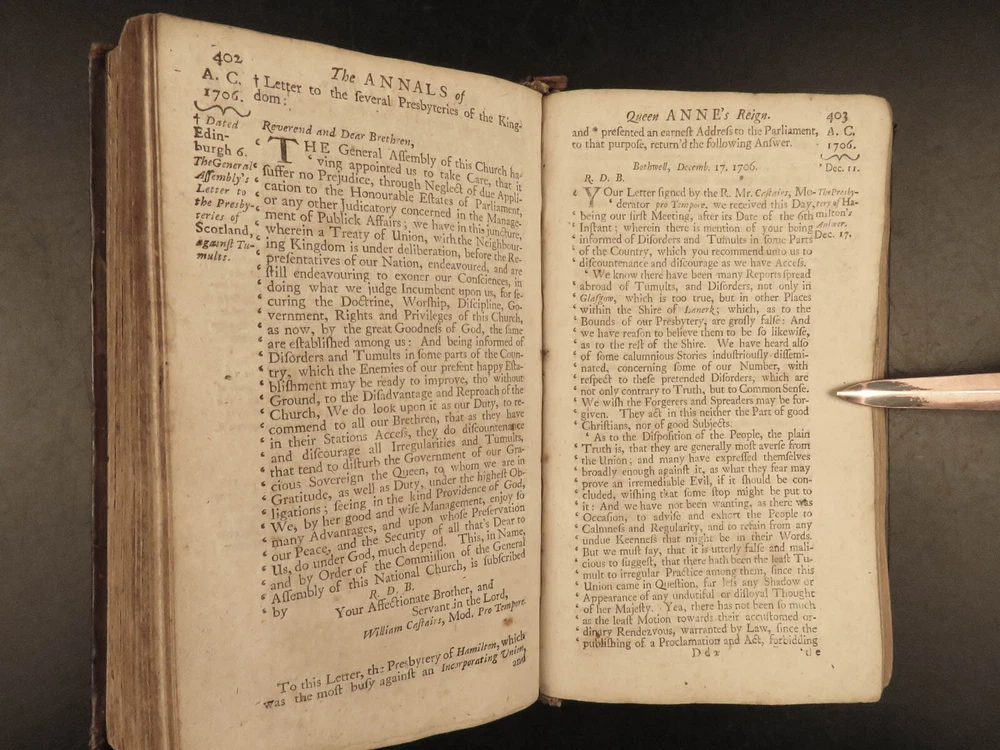 402
The ANNALS of
A. C.
1706.
† Letter to the ſeveral Presbyteries of the King-
dom:
† Dated
Edin-
burgh 6.
The General
Aſſembly's
Letter to
the Presby-
teries of
Scotland,
againſt Tu-
mults.
Reverend and Dear Brethren,
‘ THE General Aſſembly of this Church ha-
‘ ving appointed us to take Care, that it
‘ ſuffer no Prejudice, through Neglect of due Appli-
‘ cation to the Honourable Eſtates of Parliament,
‘ or any other Judicatory concerned in the Manage-
‘ ment of Publick Affairs; we have in this juncture,
‘ wherein a Treaty of Union, with the Neighbour-
‘ ing Kingdom is under deliberation, before the Re-
‘ preſentatives of our Nation, endeavoured, and are
‘ ſtill endeavouring to exoner our Conſciences, in
‘ doing what we judge Incumbent upon us, for ſe-
‘ curing the Doctrine, Worſhip, Diſcipline, Go-
‘ vernment, Rights and Privileges of this Church,
‘ as now, by the great Goodneſs of God, the ſame
‘ are eſtabliſhed among us: And being informed of
‘ Diſorders and Tumults in ſome parts of the Coun-
‘ try, which the Enemies of our preſent happy Eſta-
‘ bliſhment may be ready to improve, tho' without
‘ Ground, to the Diſadvantage and Reproach of the
‘ Church, We do look upon it as our Duty, to re-
‘ commend to all our Brethren, that as they have
‘ in their Stations Acceſs, they do diſcountenance
‘ and diſcourage all Irregularities and Tumults,
‘ that tend to diſturb the Government of our Gra-
‘ cious Sovereign the Queen, to whom we are in
‘ Gratitude, as well as Duty, under the higheſt Ob-
‘ ligations; ſeeing in the kind Providence of God,
‘ We, by her good and wiſe Management, enjoy ſo
‘ many Advantages, and upon whoſe Preſervation
‘ our Peace, and the Security of all that's Dear to
‘ Us, do under God, much depend. This, in Name,
‘ and by Order of the Commiſſion of the General
‘ Aſſembly of this National Church, is ſubſcribed
‘ by
R. D. B.
Your Affectionate Brother, and
Servant in the Lord,
William Caſtairs, Mod. Pro Tempore.
To this Letter, the Presbytery of Hamilton, which
was the moſt buſy againſt an Incorporating Union,
and
Queen ANNE's Reign.
403
A. C.
1706.
and * preſented an earneſt Addreſs to the Parliament,
to that purpoſe, return'd the following Anſwer.
* Dec. 11.
Bothwell, Decemb. 17. 1706.
R. D. B.
The Presby-
tery of Ha-
milton's
Anſwer.
Dec. 17.
‘ YOur Letter ſigned by the R. Mr. Caſtairs, Mo-
‘ derator pro Tempore, we received this Day,
‘ being our firſt Meeting, after its Date of the 6th
‘ Inſtant; wherein there is mention of your being
‘ informed of Diſorders and Tumults in ſome Parts
‘ of the Country, which you recommend unto us to
‘ diſcountenance and diſcourage as we have Acceſs.
‘ We know there have been many Reports ſpread
‘ abroad of Tumults, and Diſorders, not only in
‘ Glaſgow, which is too true, but in other Places
‘ within the Shire of Lanerk; which, as to the
‘ Bounds of our Presbytery, are groſly falſe: And
‘ we have reaſon to believe them to be ſo likewiſe,
‘ as to the reſt of the Shire. We have heard alſo
‘ of ſome calumnious Stories induſtriouſly diſſemi-
‘ nated, concerning ſome of our Number, with
‘ reſpect to theſe pretended Diſorders, which are
‘ not only contrary to Truth, but to Common Senſe.
‘ We wiſh the Forgerers and Spreaders may be for-
‘ given. They act in this neither the Part of good
‘ Chriſtians, nor of good Subjects.
‘ As to the Diſpoſition of the People, the plain
‘ Truth is, that they are generally moſt averſe from
‘ the Union; and many have expreſſed themſelves
‘ broadly enough againſt it, as what they fear may
‘ prove an irremediable Evil, if it ſhould be con-
‘ cluded, wiſhing that ſome ſtop might be put to
‘ it: And we have not been wanting, as there was
‘ Occaſion, to adviſe and exhort the People to
‘ Calmneſs and Regularity, and to refrain from any
‘ undue Keenneſs that might be in their Words.
‘ But we muſt ſay, that it is utterly falſe and mali-
‘ cious to ſuggeſt, that there hath been the leaſt Tu-
‘ mult to irregular Practice among them, ſince this
‘ Union came in Queſtion, far leſs any Shadow or
‘ Appearance of any undutiful or diſloyal Thought
‘ of her Majeſty. Yea, there has not been ſo much
‘ as the leaſt Motion towards their accuſtomed or-
‘ dinary Rendezvous, warranted by Law, ſince the
‘ publiſhing of a Proclamation and Act, forbidding
D d 2
‘ the